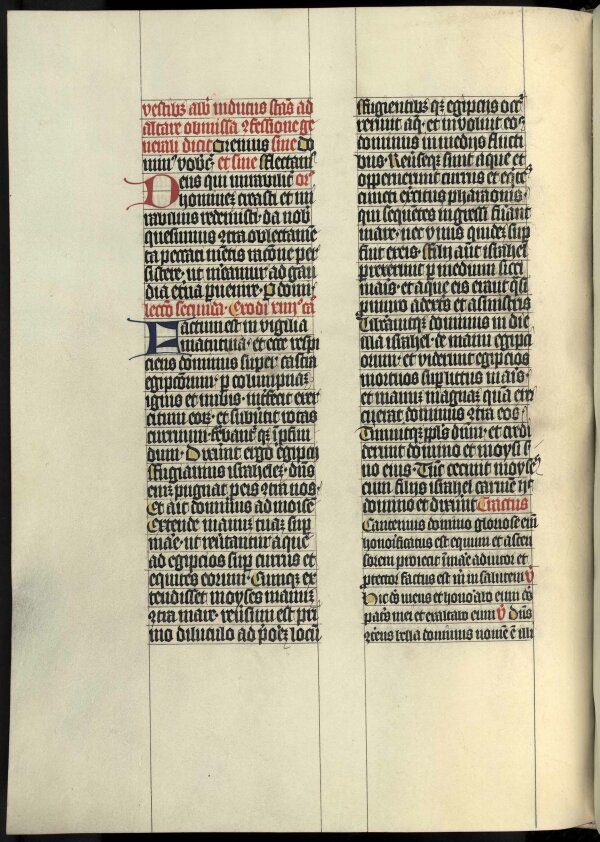 vestibus albis indutus stans ad
altare obmissa confessione ge
nerali dicit Oremus sine Do
minus vobiscum et sine flectamus
Deus qui mirabiliter cre
hominem creasti et mi
rabilius redemisti · da nobis
quesumus contra oblectamen
ta peccati mentis racione per
sistere · ut mereamur ad gau
dia eterna pervenire · Per domi
lectio secunda · Exodi xiiii ca
Factum est in vigilia
matutina · et ecce respi
ciens dominus super castra
egipciorum · per columpnam
ignis et nubis · interfecit exer
citum eorum · et subvertit rotas
curruum · ferebanturque in profun
dum · Dixerunt ergo egipcii
ffugiamus israhelem · dominus
enim pugnat pro eis contra nos ·
Et ait dominus ad moisen
Extende manum tuam super
mare · ut revertantur aque
ad egipcios super currus et
equites eorum · Cumque ex
tendisset moyses manum
contra mare · reversum est pri
mo diluculo ad priorem locum
ffugientibusque egipciis occur
rerunt aque · et involvit eos
dominus in mediis flucti
bus · Reverseque sunt aque et
operuerunt currus et equites
cuncti exercitus pharaonis ·
qui sequentes ingressi fuerant
mare · nec unus quidem super
fuit ex eis · ffilii autem israhel
perrexerunt per medium sicci
maris · et aque eis erant quasi
pro muro a dextris et a sinistris
Liberavitque dominus in die
illa israhel · de manu egipci
orum · et viderunt egipcios
mortuos super littus maris ·
et manum magnam quam ex
ercuerat dominus contra eos ·
Timuitque populus dominum · et credi
derunt domino et moysi ser
vo eius · Tunc cecinit moyses
cum filiis israhel carmen hoc
domino et dixerunt Tractus
Cantemus domino gloriose enim
honorificatus est equum et ascen
sorem proiecit in mare adiutor et
protector factus est michi in salutem V
Hic deus meus et honorabo eum deus
patris mei et exaltabo eum V Dominus
conterens bella dominus nomen est illi